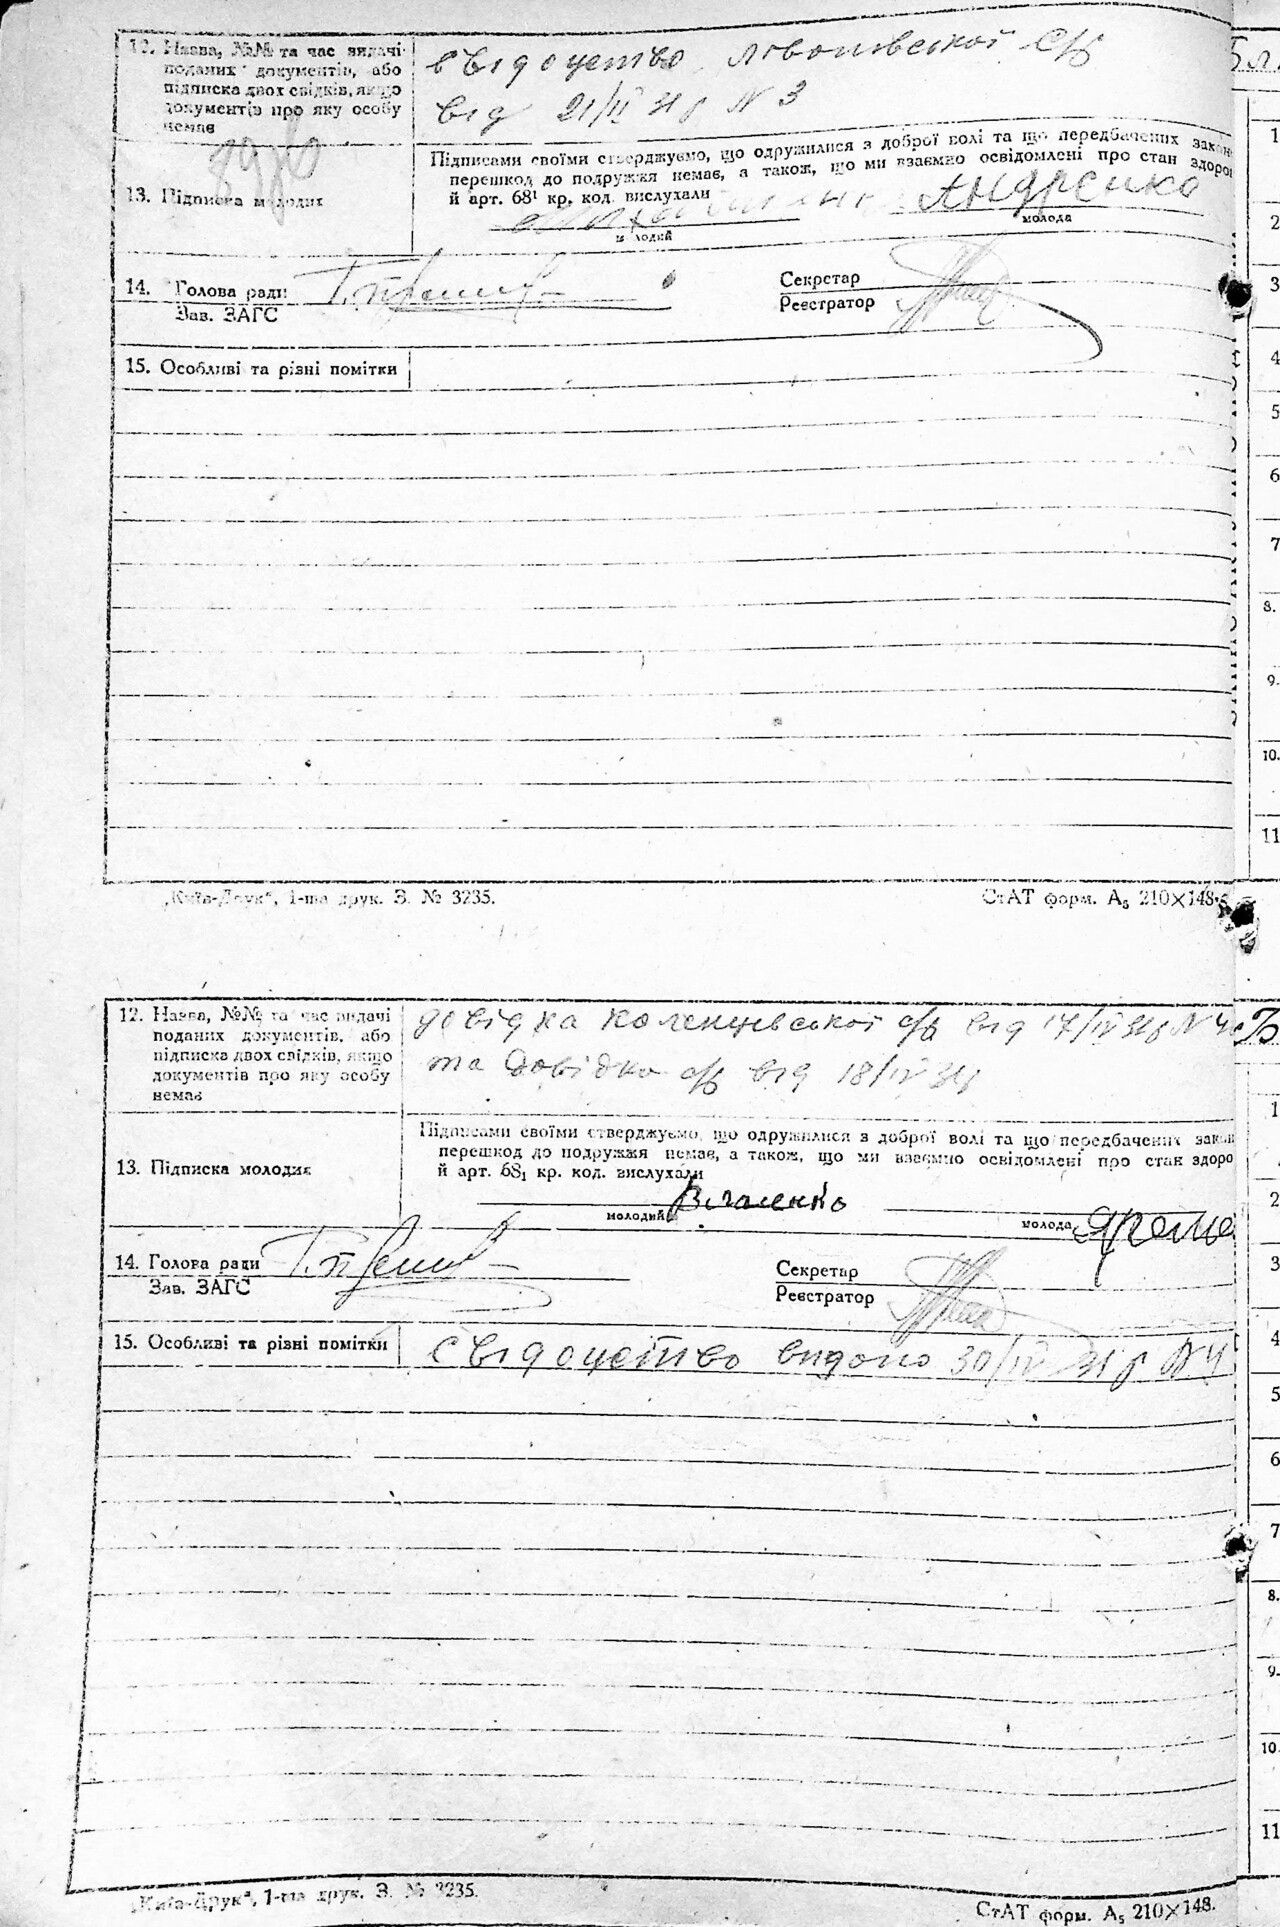 12. Назва, №№ та час видачі
поданих документів, або
підписка двох свідків, якщо
документів про яку особу
немає
свідоцтво сб
від 21/II 31р N 3
13. Підписка молодих
Підписами своїми стверджуємо, що одружилися з доброї волі та що передбачених закон
перешкод до подружжя немає, а також, що ми взаємно освідомлені про стан здоро
й арт. 68¹ кр. код. вислухали
Андрєнко
молодий
молода
14. Голова ради
Зав. ЗАГС
Секретар
Реєстратор
15. Особливі та різні помітки
„Київ-Друк“, 1-ша друк. З. № 3235.
СтАТ форм. А₅ 210×148
12. Назва, №№ та час видачі
поданих документів, або
підписка двох свідків, якщо
документів про яку особу
немає
довідка Коленцівської с/б від 17/IV 31р N
та довідка с/б від 18/IV 31р
13. Підписка молодих
Підписами своїми стверджуємо, що одружилися з доброї волі та що передбачених закон
перешкод до подружжя немає, а також, що ми взаємно освідомлені про стан здоро
й арт. 68₁ кр. код. вислухали
молодий
молода Яреме
14. Голова ради
Зав. ЗАГС
Секретар
Реєстратор
15. Особливі та різні помітки
свідоцтво видано 30/IV 31р N 4
„Київ-Друк“, 1-ша друк. З. № 3235.
СтАТ форм. А₅ 210×148.
1
2
3
4
5
6
7
8.
9.
10.
11
1
2
3
4
5
6
7
8.
9.
10.
11